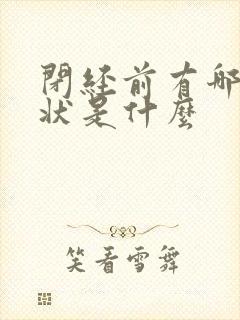 閉經前有哪
狀是什麼
笑看雪舞